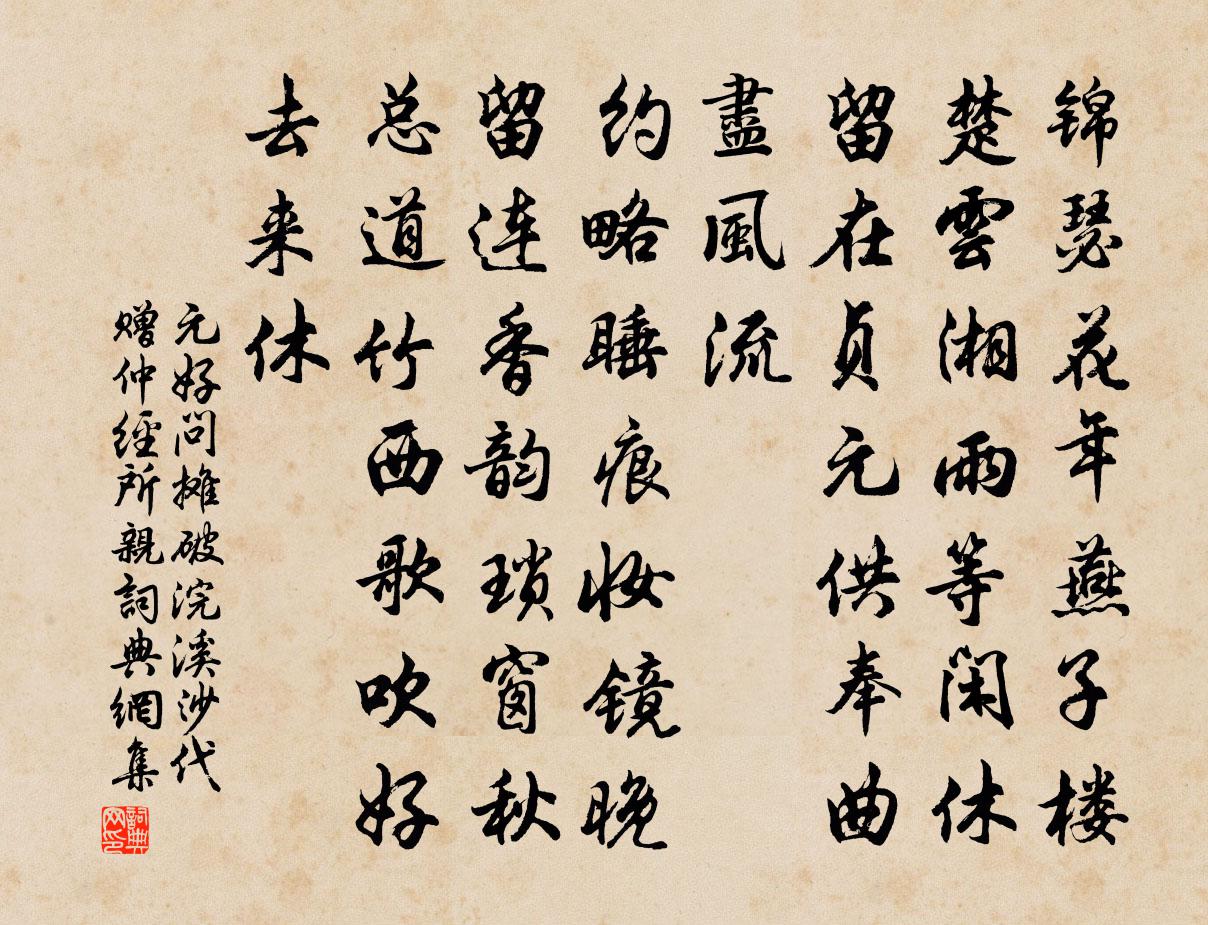 锦瑟花年燕子楼
楚雲湘雨等闲休
留在贞元供奉曲
盡風流
约略睡痕妆镜晚
留连香韵琐窗秋
总道竹西歌吹好
去来休
元好問摊破浣溪沙代
赠仲經所親詞典網集
詞典
网印